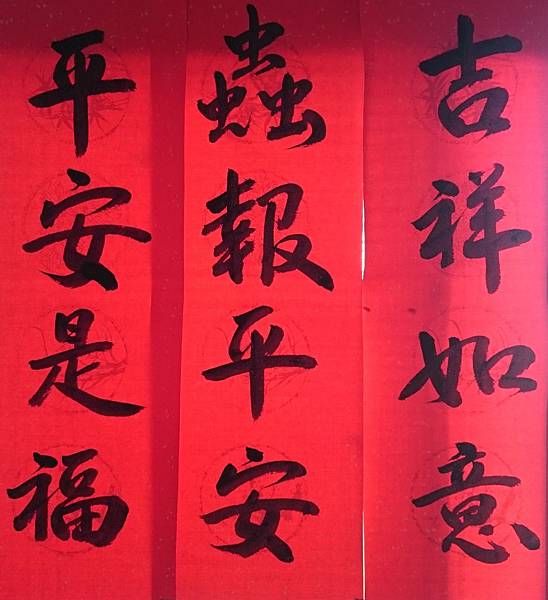 吉祥如意
蟲報平安
平安是福